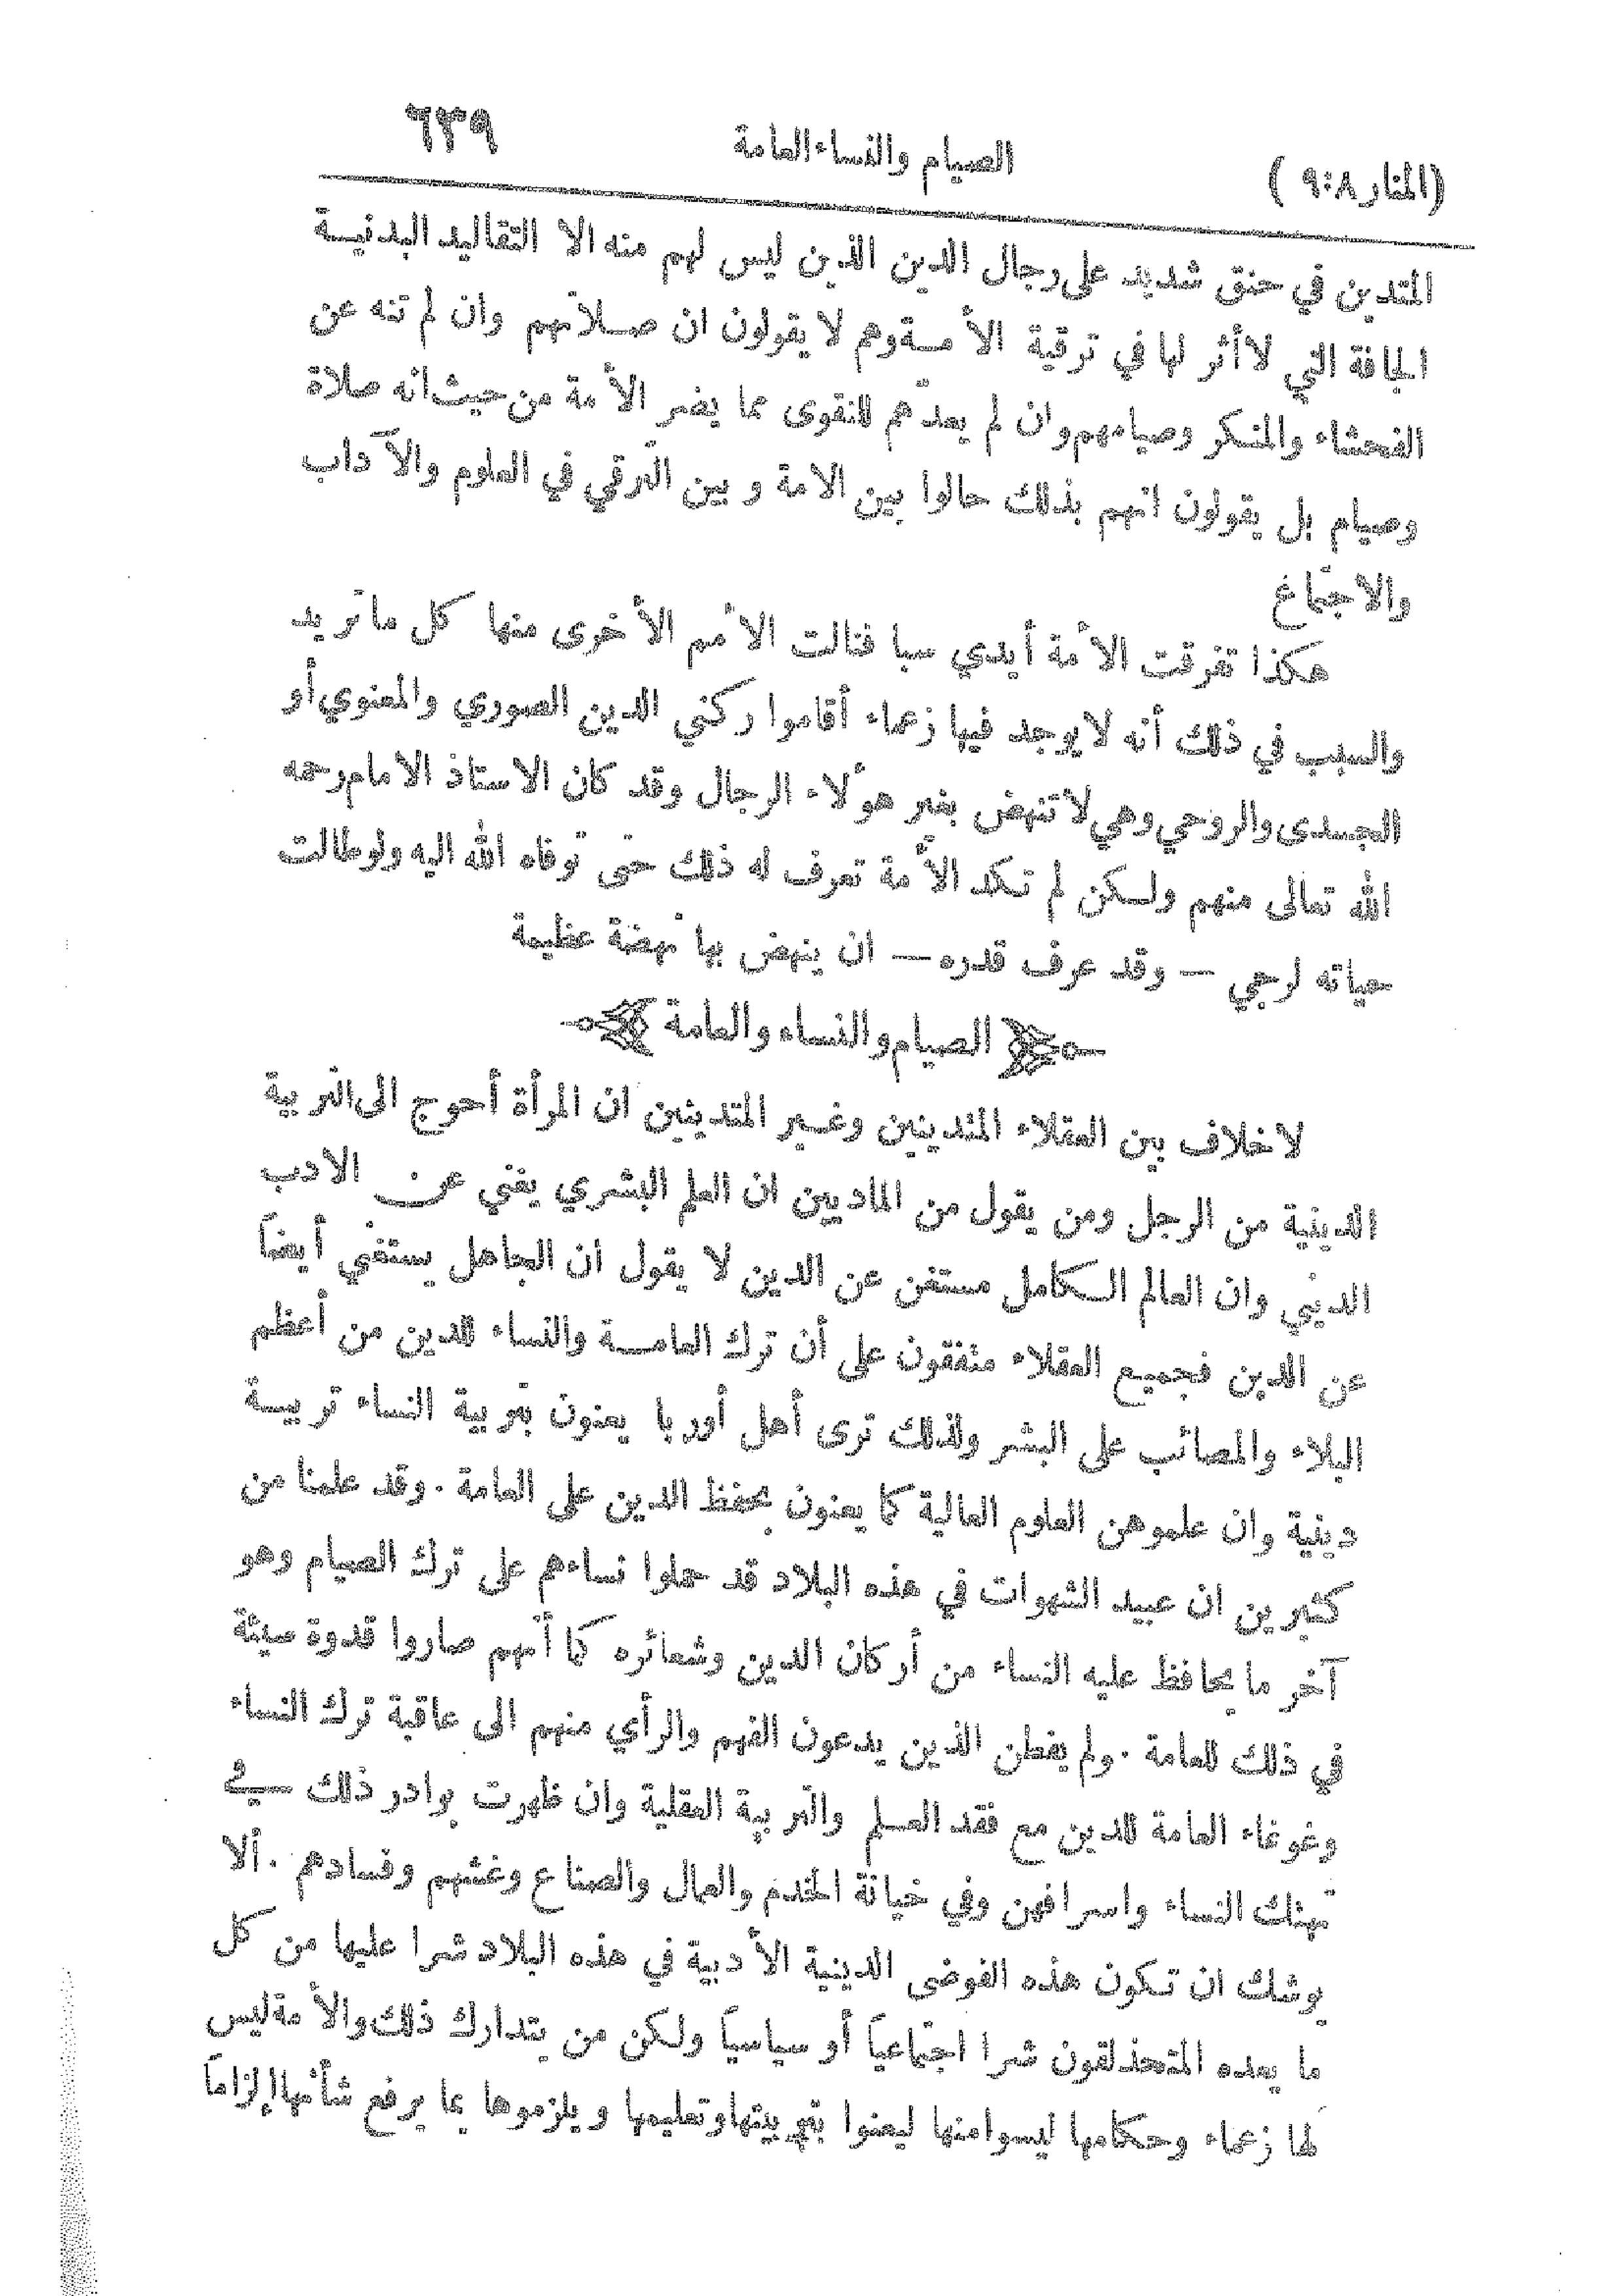 (المنار ٨:٩) الصيام والنساء العامة ٦٣٩
المتدين في حنق شديد على رجال الدين الذين ليس لهم منه الا التقاليد البدنية
الجافة التي لا أثر لها في ترقية الأمة وهم لا يقولون ان صلاتهم وان لم تنه عن
الفحشاء والمنكر وصيامهم وان لم يعدّهم للتقوى مما يضر الأمة من حيث انه صلاة
وصيام بل يقولون انهم بذلك حالوا بين الامة وبين الترقي في العلوم والآداب
والاجتماع
هكذا تفرقت الأمة أيدي سبا فنالت الأمم الأخرى منها كل ما تريد
والسبب في ذلك أنه لا يوجد فيها زعماء أقاموا ركني الدين الصوري والمعنوي أو
الجسدى والروحي وهي لا تنهض بغير هؤلاء الرجال وقد كان الاستاذ الامام رحمه
الله تعالى منهم ولكن لم تكد الأمة تعرف له ذلك حتى توفاه الله اليه ولو طالت
حياته لرجي — وقد عرف قدره — ان ينهض بها نهضة عظيمة
الصيام والنساء والعامة
لا خلاف بين العقلاء المتدينين وغير المتدينين ان المرأة أحوج الى التربية
الدينية من الرجل ومن يقول من الماديين ان العلم البشري يغني عن الادب
الديني وان العالم الكامل مستغن عن الدين لا يقول أن الجاهل يستغني أيضاً
عن الدين فجميع العقلاء متفقون على أن ترك العامة والنساء للدين من أعظم
البلاء والمصائب على البشر ولذلك ترى أهل أوربا يعنون بتربية النساء تربية
دينية وان علموهن العلوم العالية كما يعنون بحفظ الدين على العامة . وقد علمنا من
كثيرين ان عبيد الشهوات في هذه البلاد قد حملوا نساءهم على ترك الصيام وهو
آخر ما يحافظ عليه النساء من أركان الدين وشعائره كما أنهم صاروا قدوة سيئة
في ذلك للعامة . ولم يفطن الذين يدعون الفهم والرأي منهم الى عاقبة ترك النساء
وغوغاء العامة للدين مع فقد العلم والتربية العقلية وان ظهرت بوادر ذلك في
تهتك النساء واسرافهن وفي خيانة الخدم والعمال والصناع وغشهم وفسادهم . ألا
يوشك ان تكون هذه الفوضى الدينية الأدبية في هذه البلاد شرا عليها من كل
ما يعده المتحذلقون شرا اجتماعياً أو سياسياً ولكن من يتدارك ذلك والأمة ليس
لها زعماء وحكامها ليسوا منها ليعنوا بتربيتها وتعليمها ويلزموها بما يرفع شأنها إلزاماً